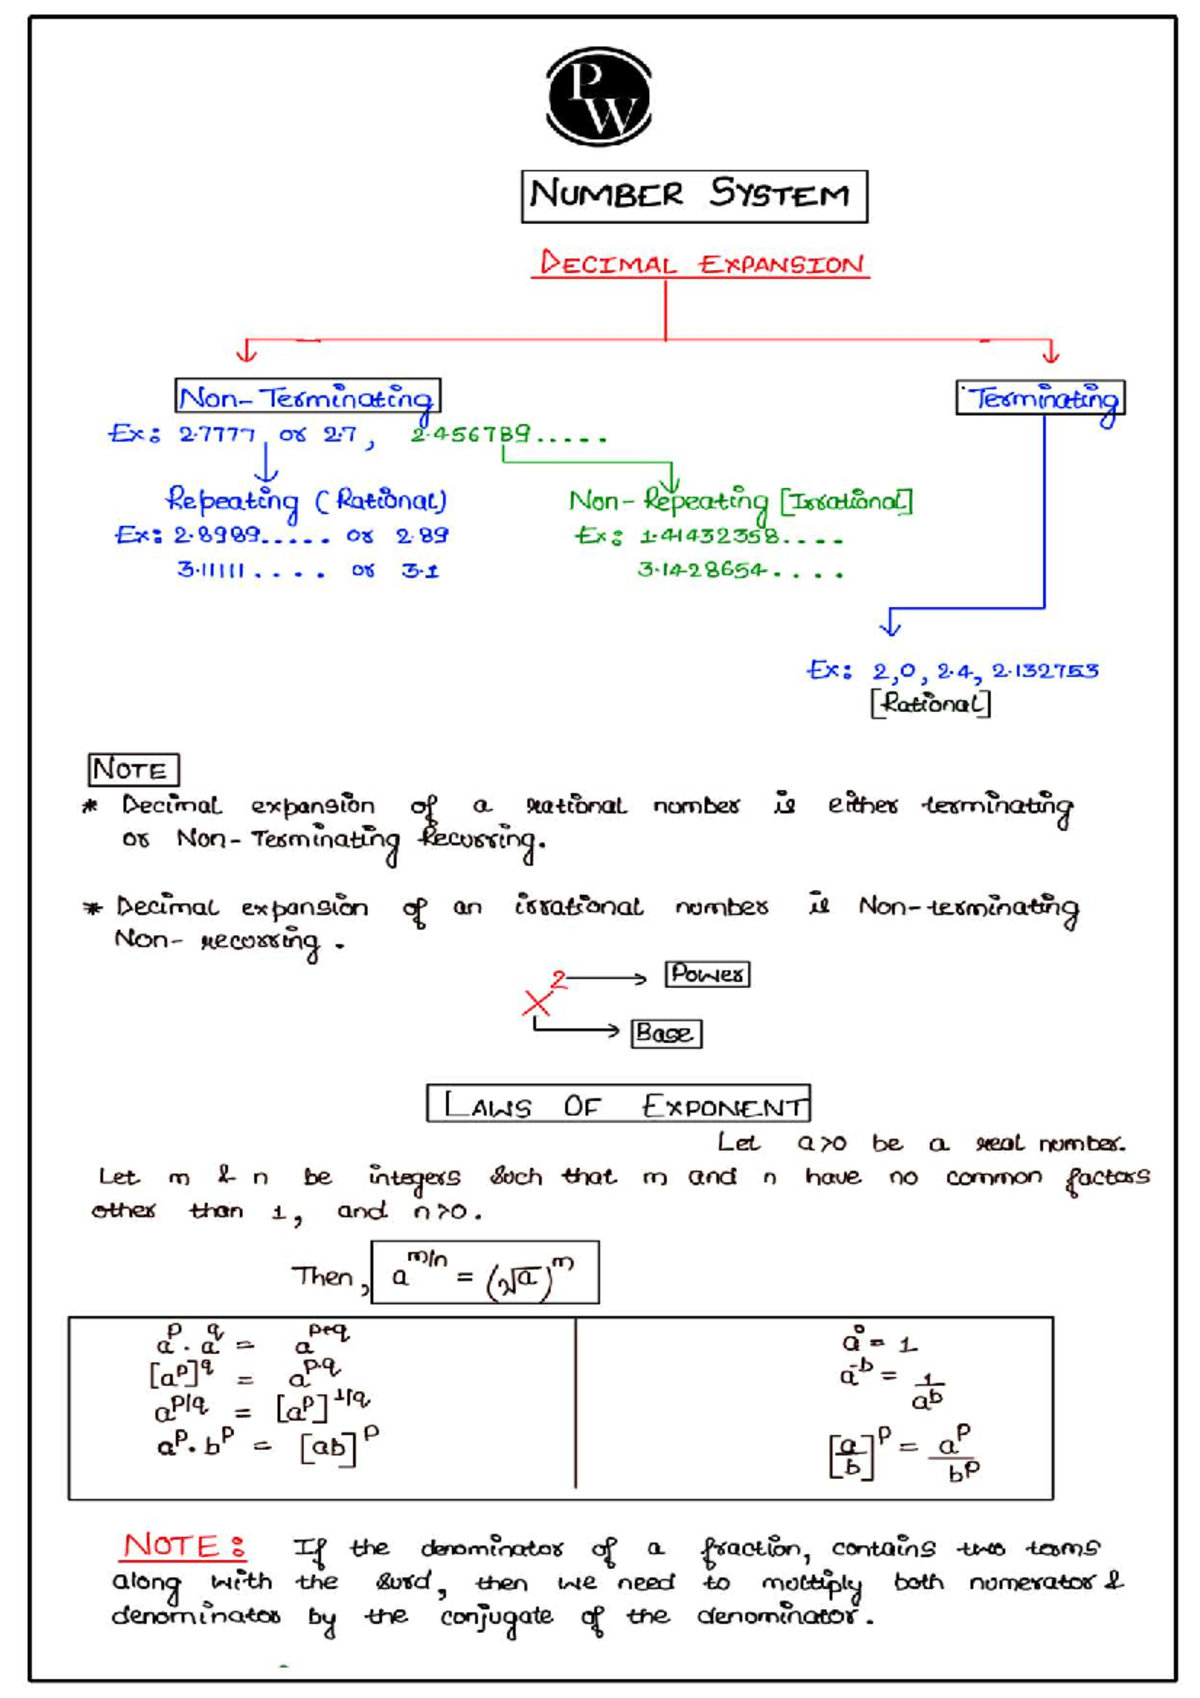 PW
NUMBER SYSTEM
DECIMAL EXPANSION
Non-Terminating
Terminating
Ex: 2.7777 or 2.7, 2.456789.....
Repeating (Rational)
Non-Repeating [Irrational]
Ex: 2.8989..... or 2.89
Ex: 1.41432358....
3.11111.... or 3.1
3.1428654....
Ex: 2,0, 2.4, 2.132753
[Rational]
NOTE
* Decimal expansion of a rational number is either terminating
or Non-Terminating Recurring.
* Decimal expansion of an irrational number is Non-terminating
Non-recurring.
x² → Power
Base
LAWS OF EXPONENT
Let a>0 be a real number.
Let m & n be integers such that m and n have no common factors
other than 1, and n>0.
Then, a^(m/n) = (ⁿ√a)^m
a^p . a^q = a^(p+q)
a^0 = 1
[a^p]^q = a^(p.q)
a^-b = 1/a^b
a^(p/q) = [a^p]^(1/q)
a^p . b^p = [ab]^p
[a/b]^p = a^p/b^p
NOTE: If the denominator of a fraction, contains two terms
along with the surd, then we need to multiply both numerator &
denominator by the conjugate of the denominator.